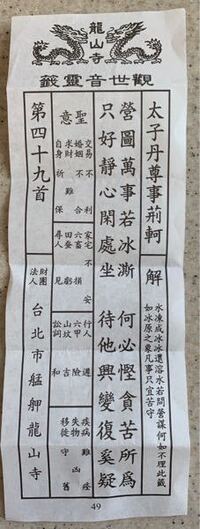 龍山寺
觀世音靈籤
太子丹尊事荊軻
解
水凍成冰冰還溶水若問營謀何如不理此籤
如冰原之象凡事只宜苦守
營圖萬事若冰澌 何必慳貪苦所為
只好靜心閑處坐 待他興變復奚疑
聖意
交易 不利
婚姻 不合
求財 難
自身 祈保
家宅 不安
六畜 損
田蠶 虧
尋人 見
行人 遲
六甲 險
山墳 吉
訟詞 和
疾病
失物 凶
移徙 守舊
第四十九首
財團
法人
台北市艋舺龍山寺
49